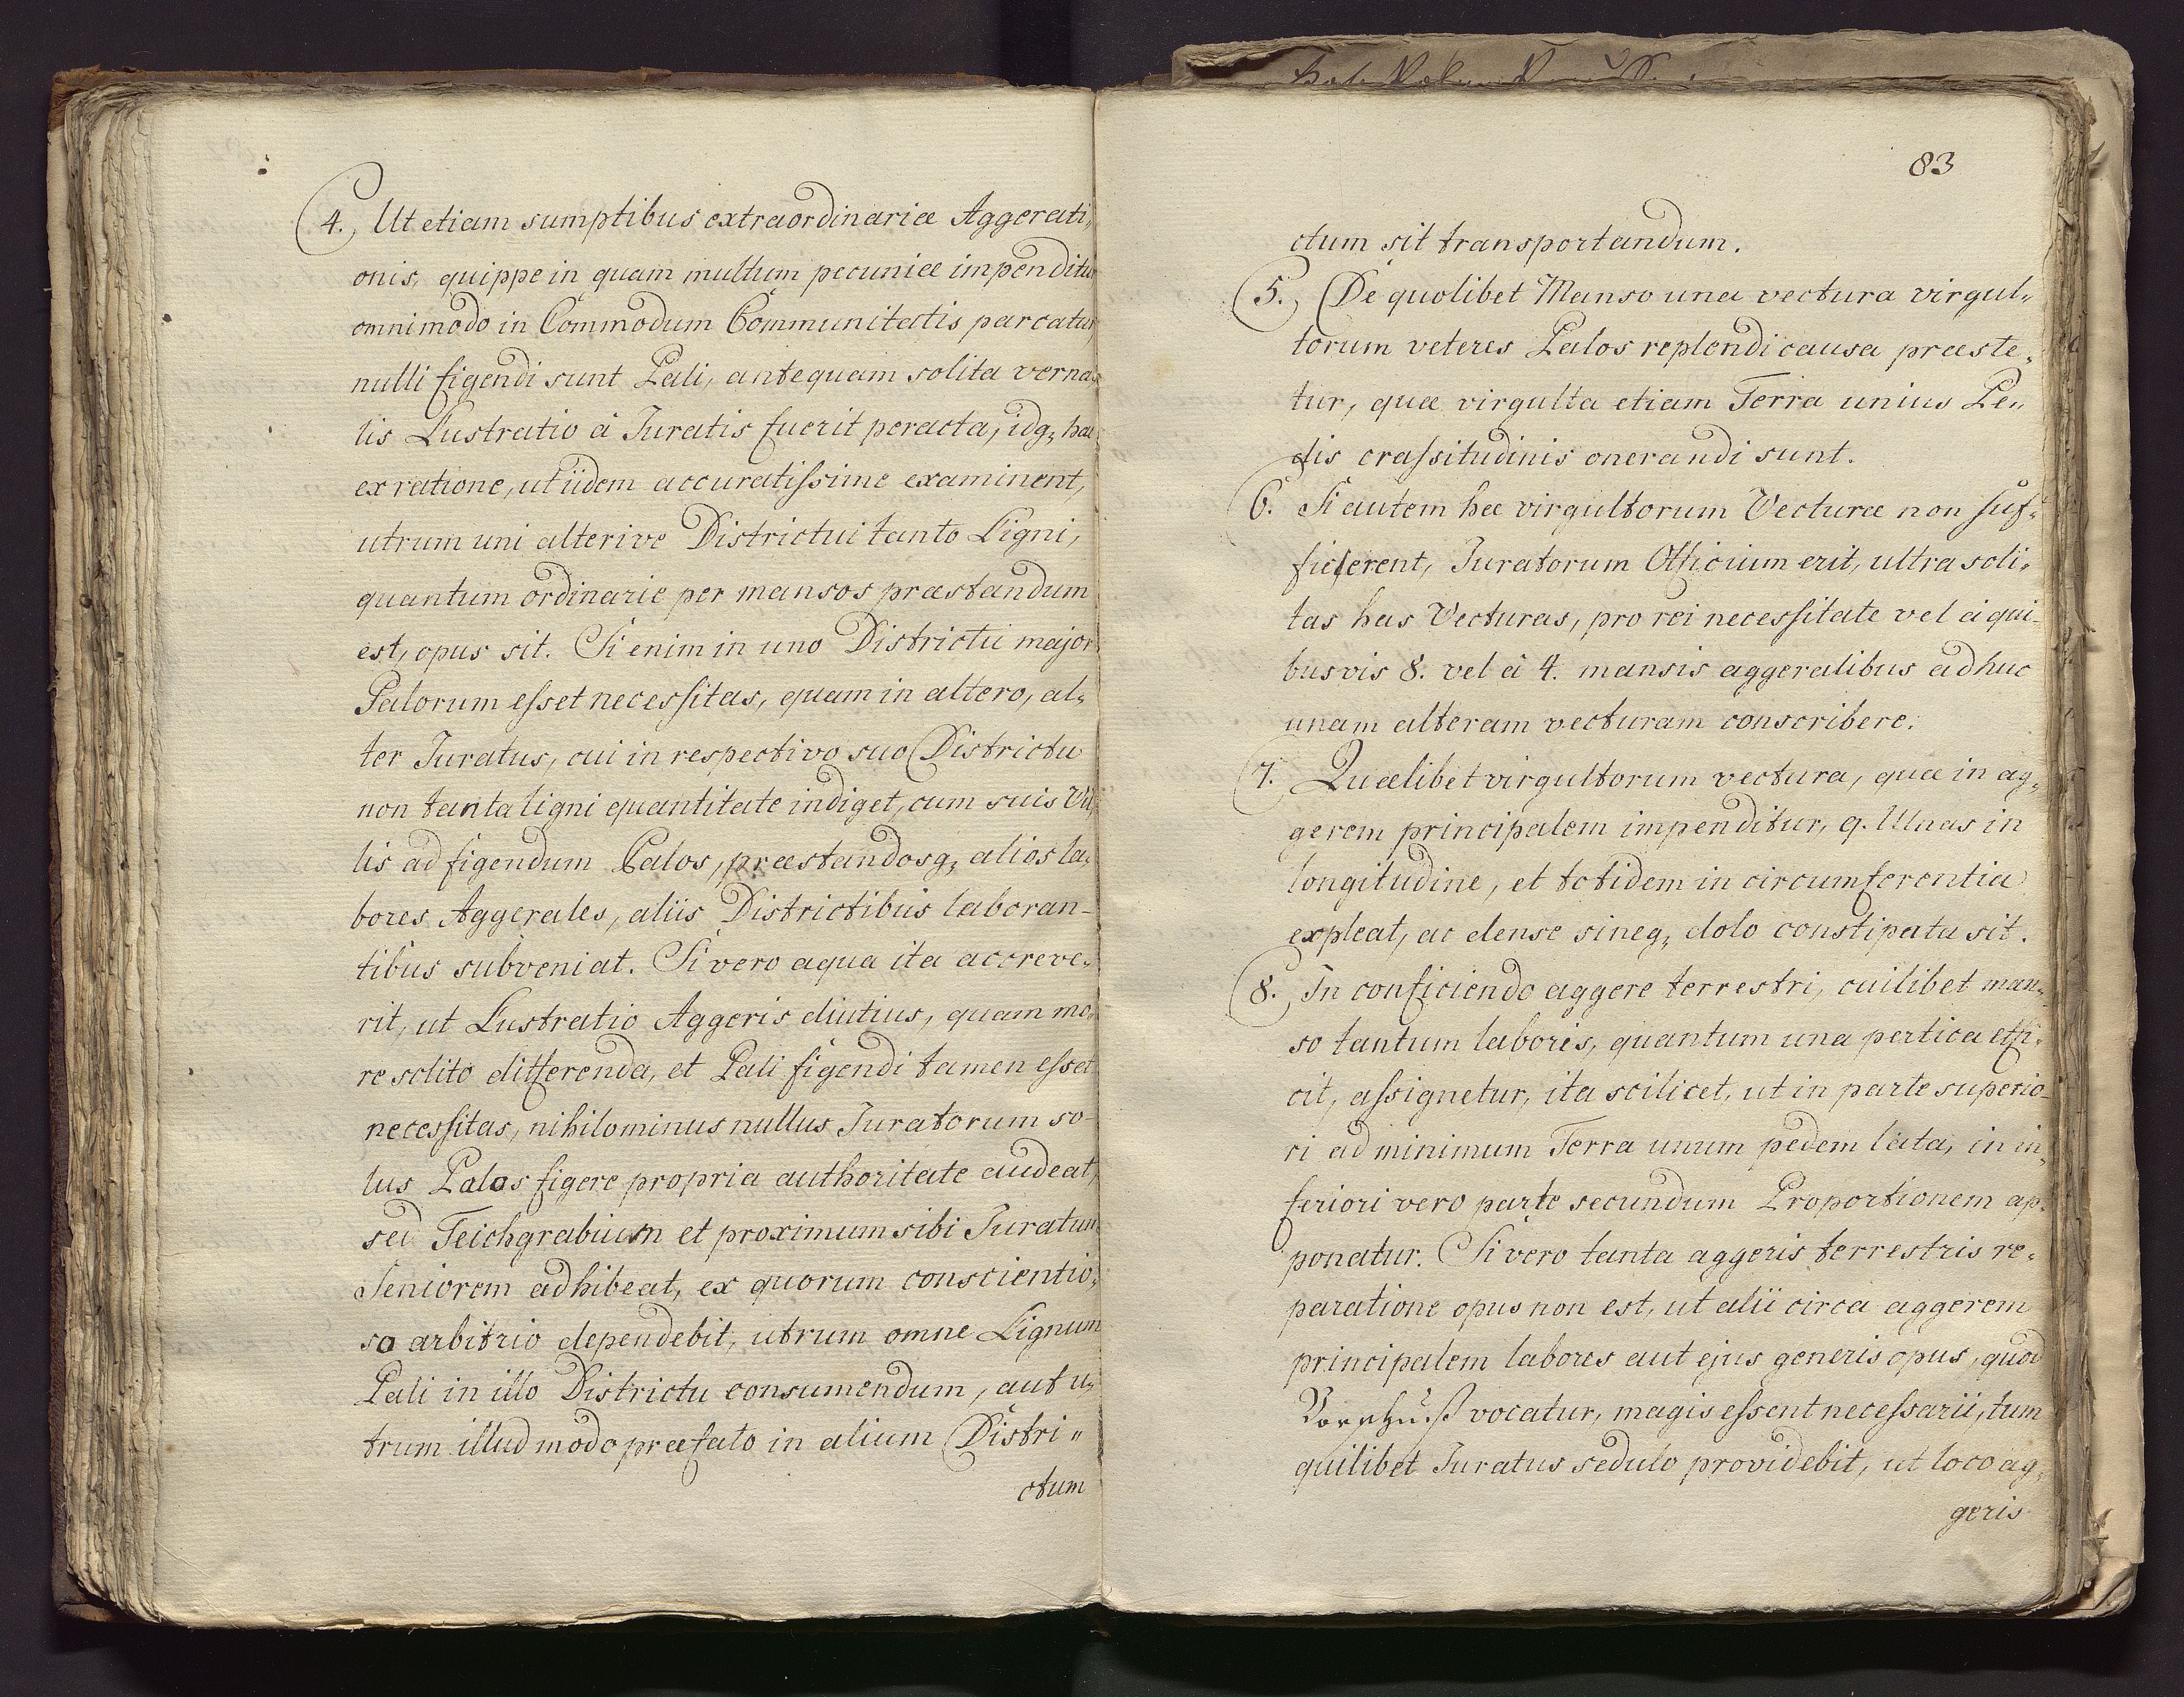 4. Ut etiam sumptibus extraordinariæ Aggerati„
onis, quippe in quam multum pecuniæ impenditur
omnimodo in Commodum Communitatis parcatur,
nulli figendi sunt Pali, antequam solita verna„
lis Lustratio à Juratis fuerit peracta, idq; hac
ex ratione, ut iidem accuratissime examinent,
utrum uni alterive Districtui tanto Ligni,
quantum ordinarie per mansos præstandum
est, opus sit. Si enim in uno Districtu major
Palorum esset necessitas, quam in altero, al„
ter Juratus, cui in respectivo suo Districtu
non tanta ligni quantitate indiget, cum suis Vil„
lis ad figendum Palos, præstandosq; alios la„
bores Aggerales, aliis Districtibus laboran-
tibus subveniat. Si vero aqua ita accreve„
rit, ut Lustratio Aggeris diutius, quam mo„
re solito differenda, et Pali figendi tamen esset
necessitas, nihilominus nullus Juratorum so-
lus Palos figere propria authoritate audeat,
sed Teichgrabium et proximum sibi Juratum
Seniorem adhibeat, ex quorum conscientio„
so arbitrio dependebit, utrum omne Lignum
Pali in illo Districtu consumendum, aut u„
trum illud modo præfato in alium Distri„
ctum
83
ctum sit transportandum.
5. De quolibet Manso una vectura virgul„
torum veteres Palos replendi causa præste„
tur, quæ virgulta etiam Terra unius Pe„
dis crassitudinis oneranda sunt.
6. Si autem hæ virgultorum Vecturæ non suf„
ficerent, Juratorum Officium erit, ultra soli„
tas has Vecturas, pro rei necessitate vel à qui-
busvis 8. vel à 4. mansis aggeralibus adhuc
unam alteram vecturam conscribere.
7. Quælibet virgultorum vectura, quæ in ag„
gerem principalem impenditur, 9. Ulnas in
longitudine, et totidem in circumferentia
expleat, ac dense sineq; dolo constipata sit.
8. In conficiendo aggere terrestri, cuilibet man„
so tantum laboris, quantum una pertica effi„
cit, assignetur, ita scilicet, ut in parte superio-
ri ad minimum Terra unum pedem lata, in in„
feriori vero parte secundum Proportionem ap„
ponatur. Si vero tanta aggeris terrestris re„
paratione opus non est, ut alii circa aggerem
principalem labores aut ejus generis opus, quod
vocatur, magis essent necessarii, tum
quilibet Juratus sedulo providebit, ut loco ag„
geris